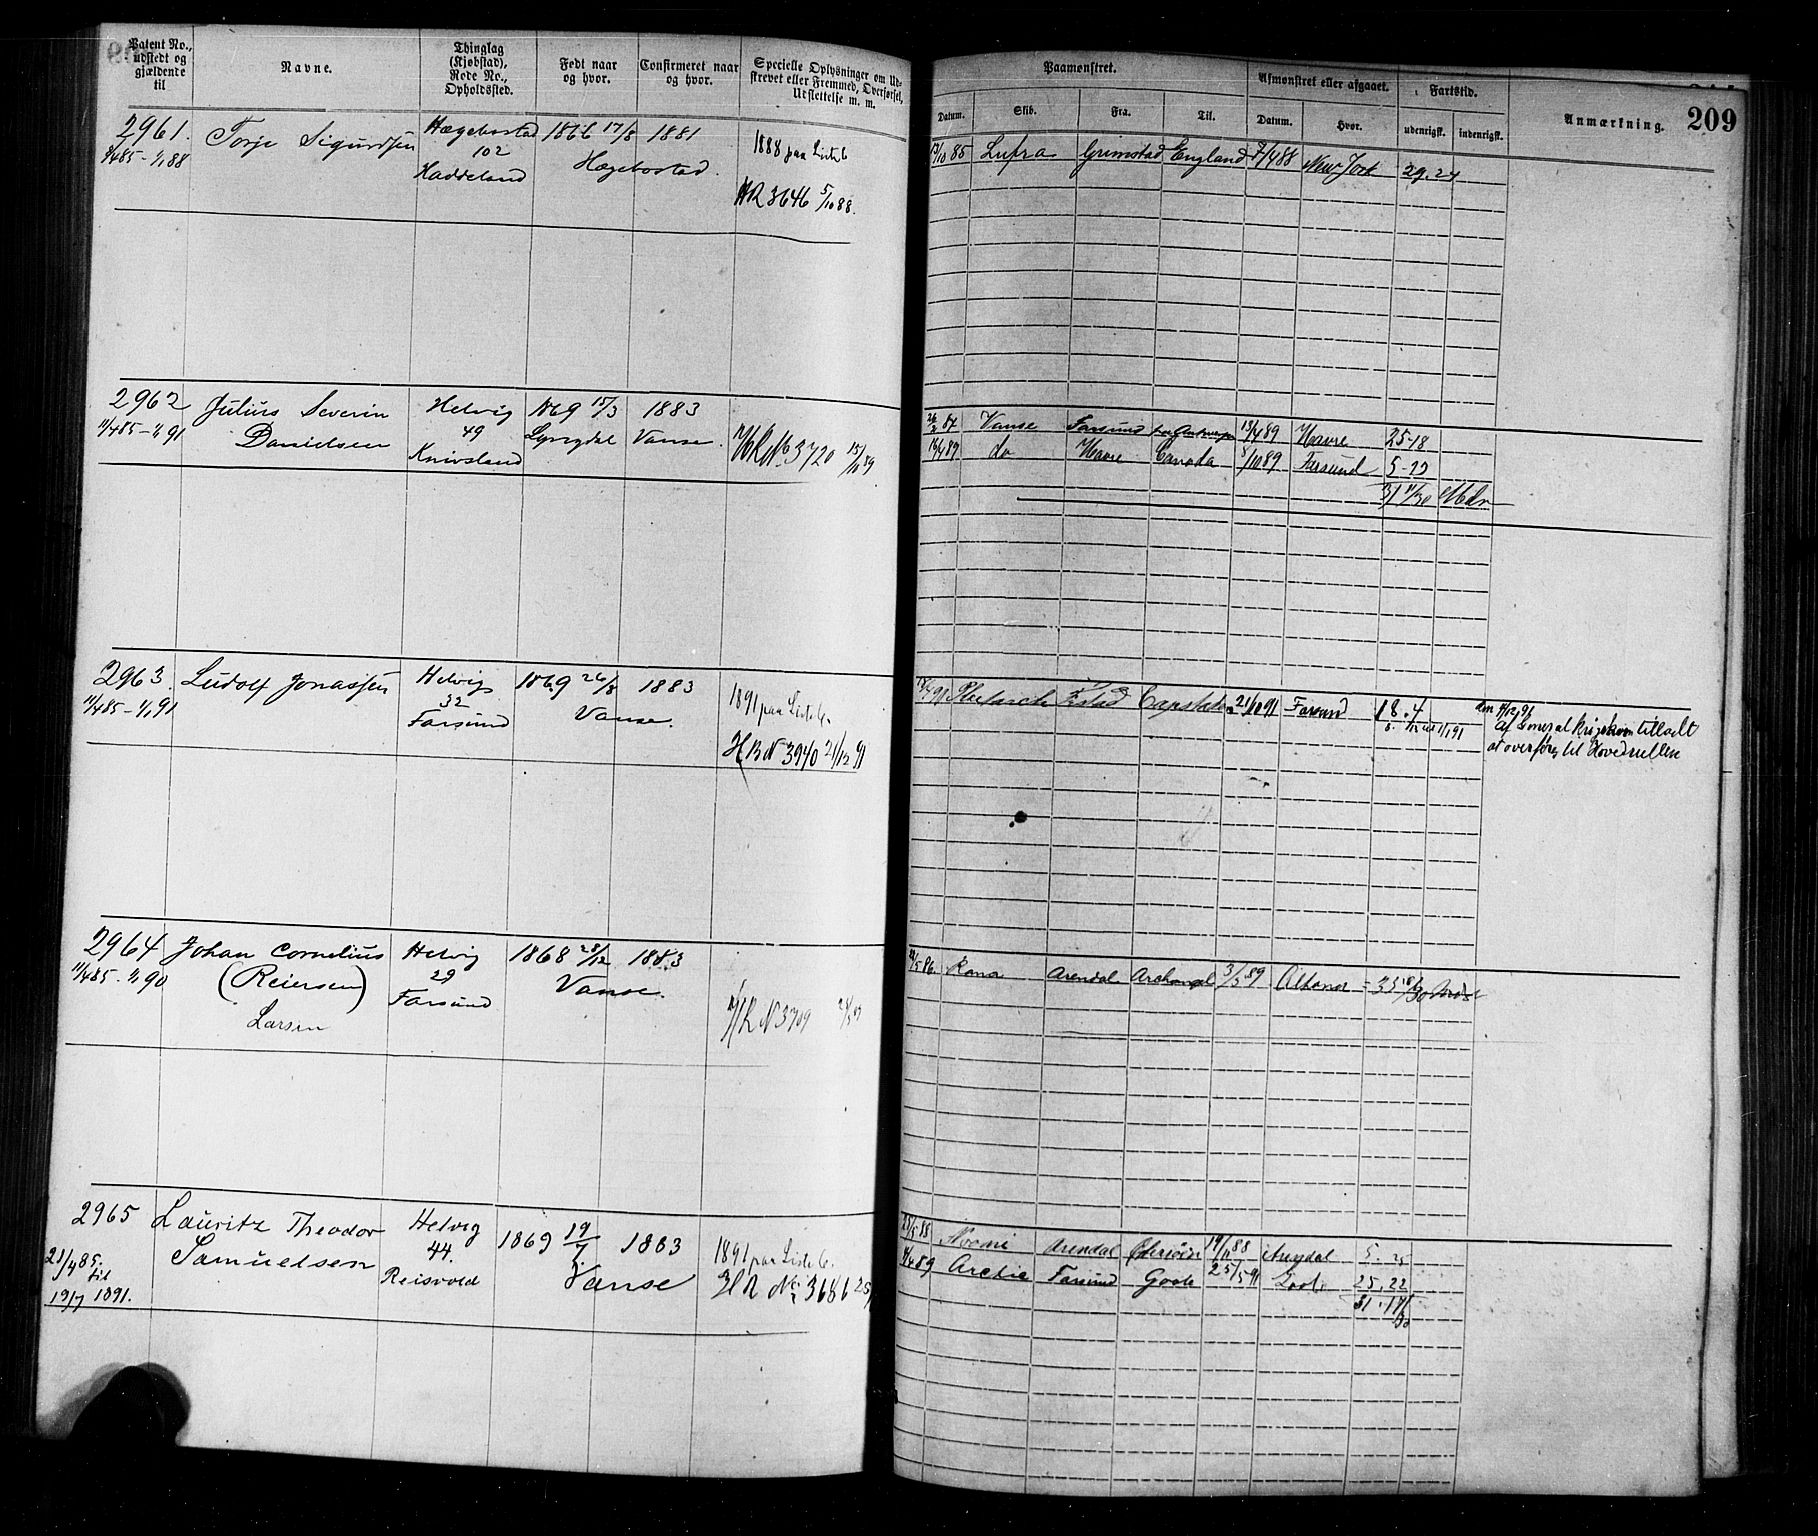 Patent No., udstedt og gjældende til
Navne.
Thinglag (Kjøbstad), Rode No., Opholdssted.
Født naar og hvor.
Confirmeret naar og hvor.
Specielle Oplysninger om Udstrevet eller Fremmed, Overførsel, Udslettelse m. m.
Paamønstret.
Datum.
Skib.
Fra.
Til.
Afmønstret eller afgaaet.
Datum.
Hvor.
Fartstid.
udenrigsk.
indenrigsk.
Anmærkning.
209
2961.
Torje Sigurdsen
Hægebostad
102
Haddeland
1866 17/8
1881
Hægebostad.
1888 paa Liste 6
HR 3646 5/10 88.
13/10 85 Lufra Grimstad England New York 29.24
2962
11/4 85 - 1/1 91
Julius Severin
Danielsen
Helvig
49
Knivsland
1869 15/3
Lyngdal
1883
Vanse.
HR No 3720 15/10 89.
87 Vanse Farsund Antwerpen 13/4 89 Havre 25-18
15/4 89 do Havre Canada 8/10 89 Farsund
2963.
11/4 85 - 1/1 91
Ludolf Jonassen
Helvig
32
Farsund
1869 26/8
1883
Vanse.
1891 paa Liste 6.
HR N 3940 21/12 91
Capstaden 21/10 91 Farsund 18.4
tilladt
at overføres til Hovedrullen
2964
11/4 85 - 1/1 90
Johan Cornelius
(Reiersen)
Larsen
Helvig
29
Farsund
1868 28/12
1883
Vanse.
HR N 3709
86 Rana Arendal Archangel 3/5 89 Altona
2965
21/4 85.
til
19/7 1891.
Lauritz Theodor
Samuelsen
Helvig
44.
Reisvold
1869 19/7.
1883
Vanse
1891 paa Liste 6.
HR No 3686
88 Noomi Arendal 19/11 88 Arendal 5.25
89 Arctic Farsund Goole 25/5 91 Goole 25.22